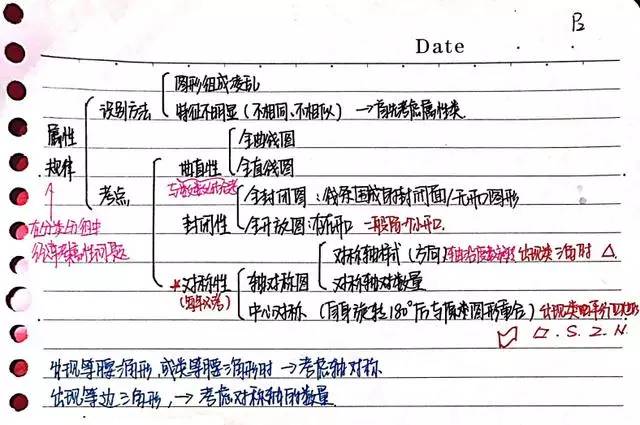 B2
Date
图形组成凌乱
识别方法
特征不明显(不相同、不相似) → 首先考虑属性类
属性
规律
全曲线图
曲直性
全直线图
考点
全封闭图:线条围成的封闭面/无开口图形
封闭性
全开放图:有开口 一般留个小开口
在分类分组中
经常考属性问题
对称轴样式(方向) 出现类三角时 △
轴对称图
对称轴对数量
*对称性
(每年必考)
中心对称 (自身旋转180°后与原来图形重合) 出现类平行四边形
▱ . S . Z . N .
出现等腰三角形,或类等腰三角形时 → 考虑轴对称
出现等边三角形, → 考虑对称轴的数量